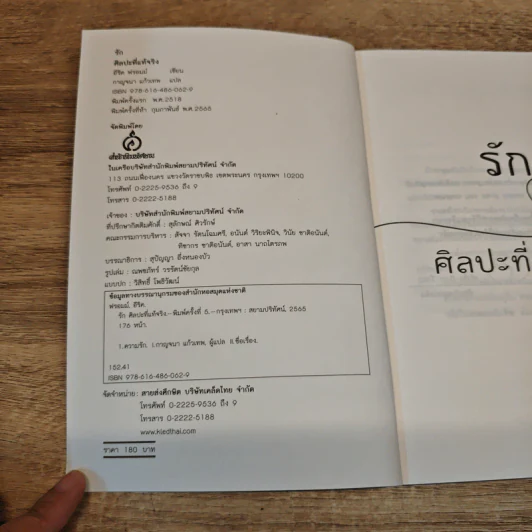 รัก
ศิลปะที่แท้จริง
อีริค ฟรอมม์ เขียน
กาญจนา แก้วเทพ แปล
ISBN 978-616-486-062-9
พิมพ์ครั้งแรก พ.ศ.2518
พิมพ์ครั้งที่ห้า กุมภาพันธ์ พ.ศ.2565
จัดพิมพ์โดย
ในเครือบริษัทสำนักพิมพ์สยามปริทัศน์ จำกัด
113 ถนนเฟื่องนคร แขวงวัดราชบพิธ เขตพระนคร กรุงเทพฯ 10200
โทรศัพท์ 0-2225-9536 ถึง 9
โทรสาร 0-2222-5188
เจ้าของ : บริษัทสำนักพิมพ์สยามปริทัศน์ จำกัด
ที่ปรึกษากิตติมศักดิ์ : สุลักษณ์ ศิวรักษ์
คณะกรรมการบริหาร : สัจจา รัตนโฉมศรี, อนันต์ วิริยะพินิจ, วินัย ชาติอนันต์,
ทิชากร ชาติอนันต์, ยาสา นาถไตรภพ
บรรณาธิการ : สุปัญญา อึ่งหนองบัว
รูปเล่ม : ณพธภัทร์ วชรัตน์ชัยกุล
แบบปก : วิสิทธิ์ โพธิวัฒน์
ข้อมูลทางบรรณานุกรมของสำนักหอสมุดแห่งชาติ
ฟรอมม์, อีริค.
รัก ศิลปะที่แท้จริง.--พิมพ์ครั้งที่ 5.--กรุงเทพฯ : สยามปริทัศน์, 2565
176 หน้า.
1.ความรัก. I.กาญจนา แก้วเทพ, ผู้แปล II.ชื่อเรื่อง.
152.41
ISBN 978-616-486-062-9
จัดจำหน่าย: สายส่งศึกษิต บริษัทเคล็ดไทย จำกัด
โทรศัพท์ 0-2225-9536 ถึง 9
โทรสาร 0-2222-5188
www.kledthai.com
ราคา 180 บาท
รัก
ศิลปะที่